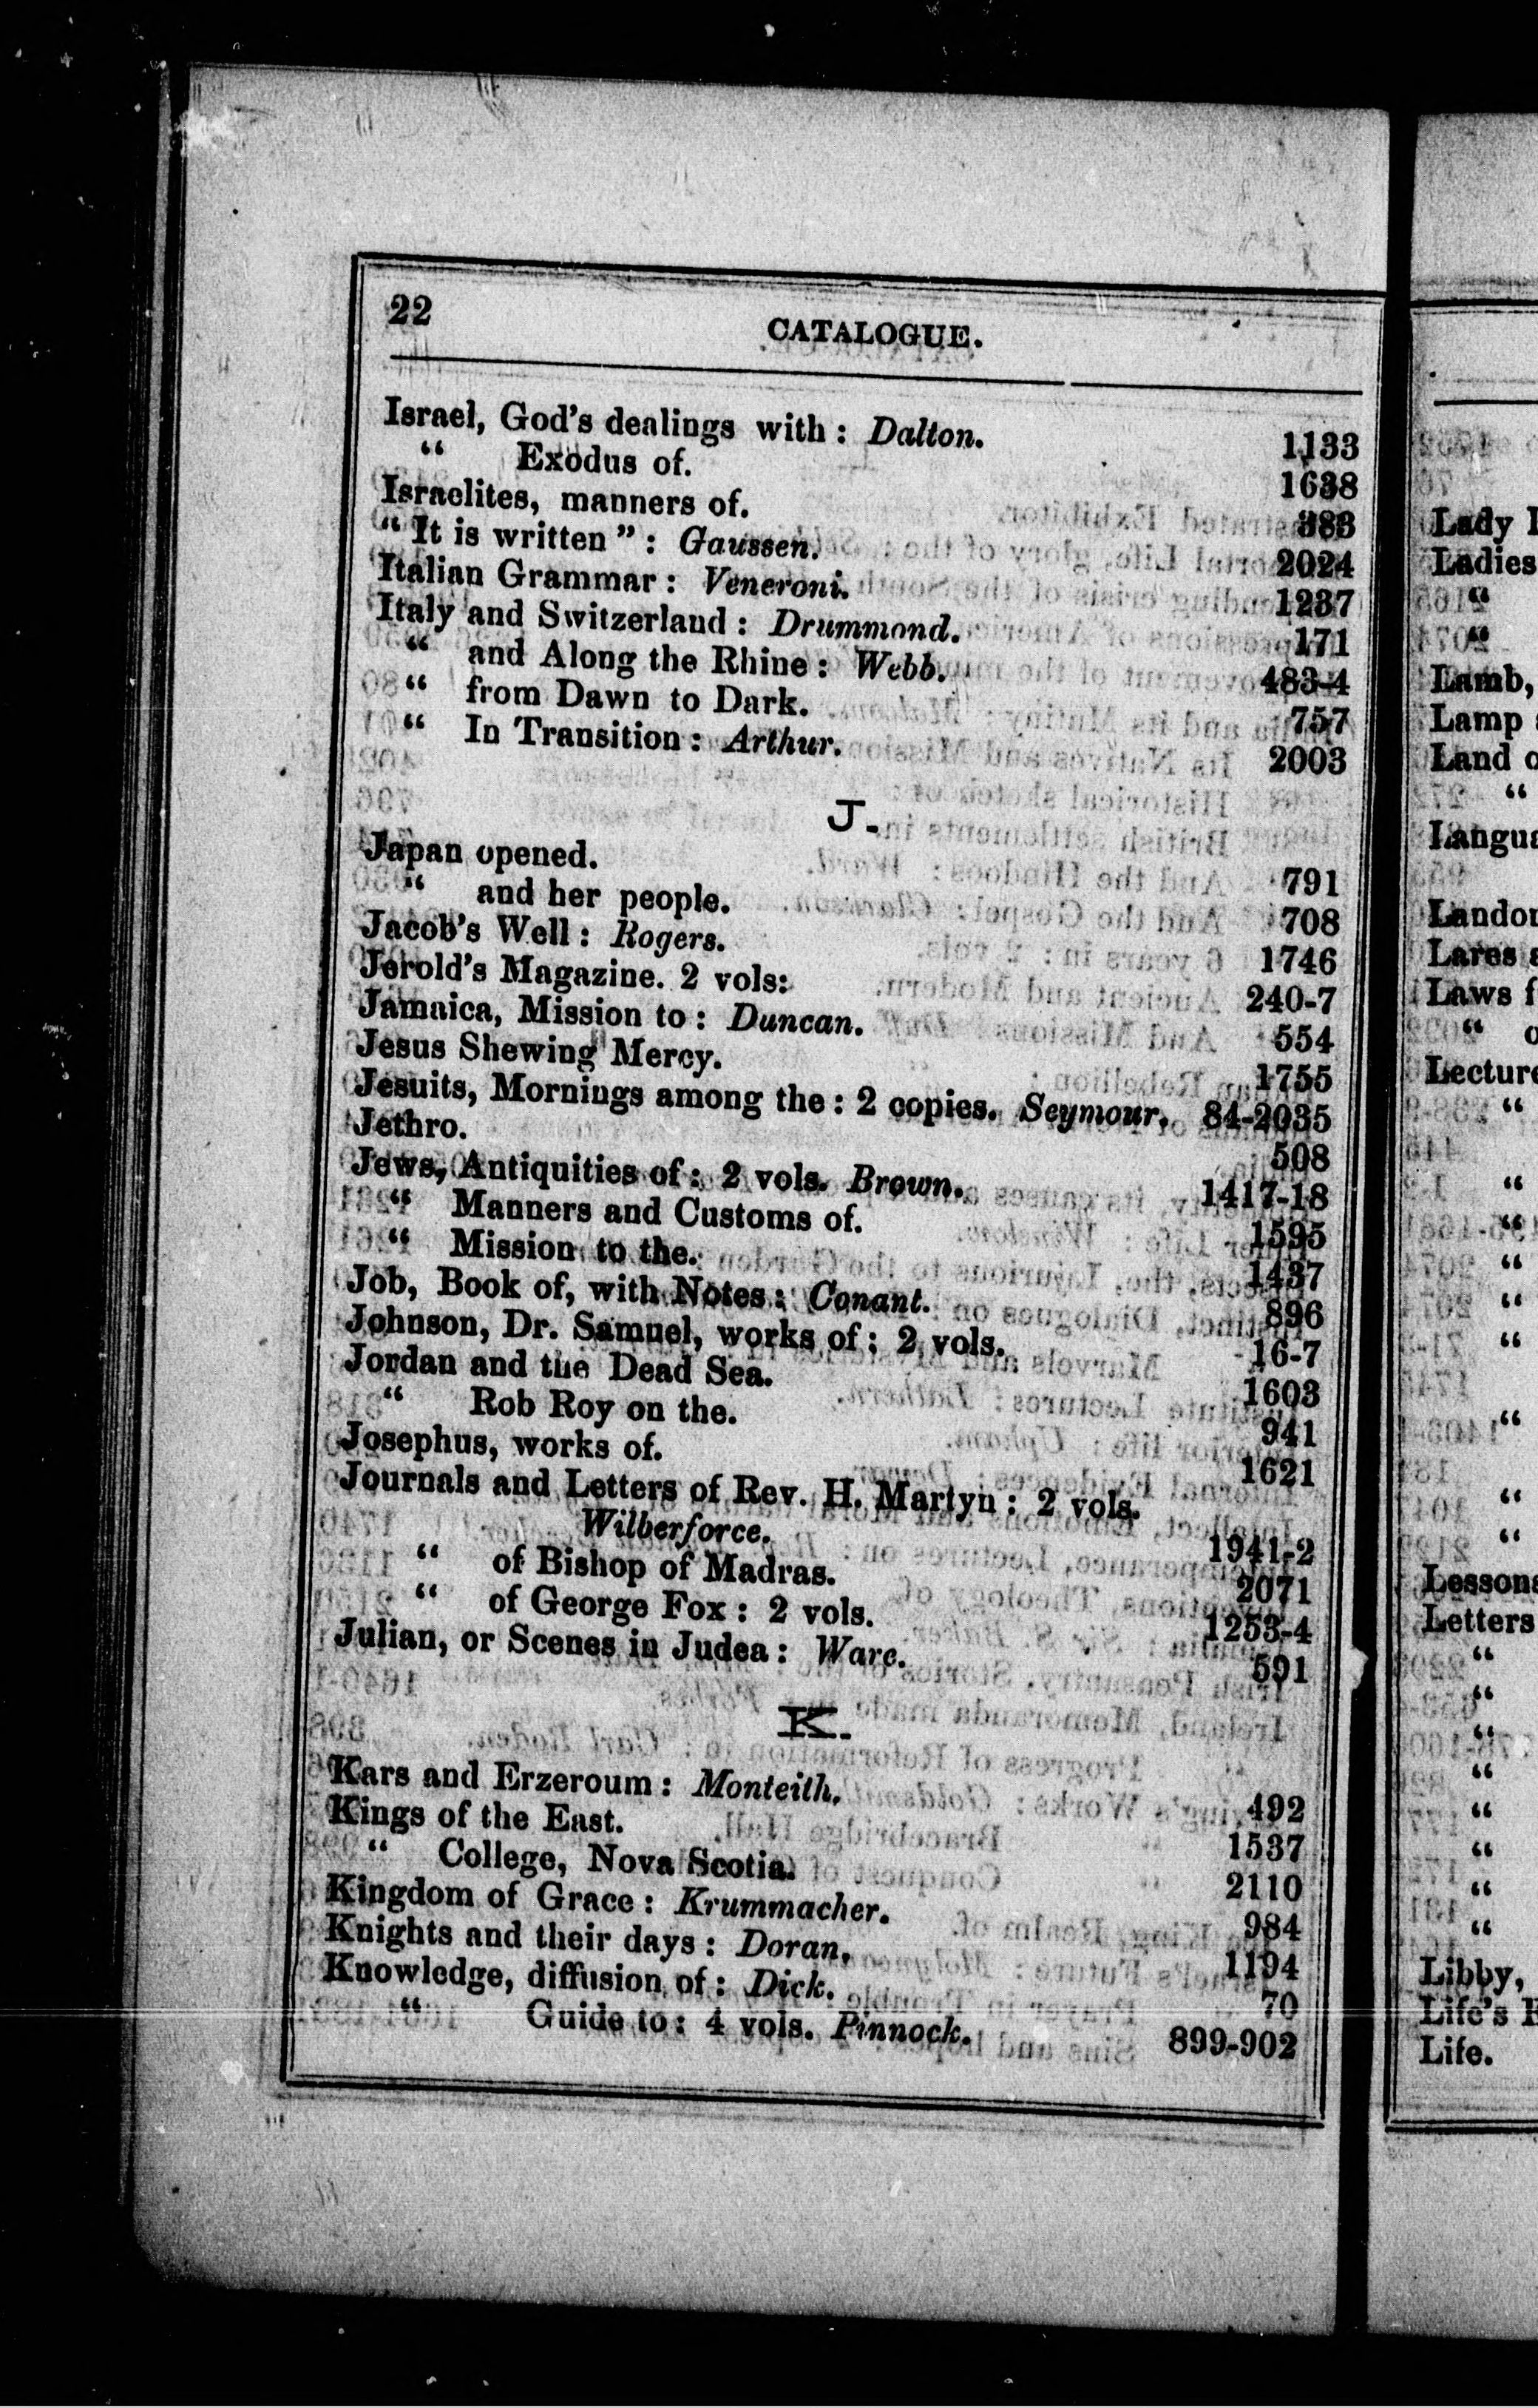 22
CATALOGUE.
Israel, God's dealings with : Dalton. 1133
“ Exodus of. 1638
Israelites, manners of. 383
“ It is written ” : Gaussen. 2024
Italian Grammar : Veneroni. 1237
Italy and Switzerland : Drummond. 171
“ and Along the Rhine : Webb. 483-4
“ from Dawn to Dark. 757
“ In Transition : Arthur. 2003
J.
Japan opened. 791
“ and her people. 708
Jacob's Well : Rogers. 1746
Jerold's Magazine. 2 vols: 240-7
Jamaica, Mission to : Duncan. 554
Jesus Shewing Mercy. 1755
Jesuits, Mornings among the : 2 copies. Seymour. 84-2035
Jethro. 508
Jews, Antiquities of : 2 vols. Brown. 1417-18
“ Manners and Customs of. 1595
“ Mission to the. 1437
Job, Book of, with Notes : Conant. 896
Johnson, Dr. Samuel, works of : 2 vols. 16-7
Jordan and the Dead Sea. 1603
“ Rob Roy on the. 941
Josephus, works of. 1621
Journals and Letters of Rev. H. Martyn : 2 vols.
Wilberforce. 1941-2
“ of Bishop of Madras. 2071
“ of George Fox : 2 vols. 1253-4
Julian, or Scenes in Judea : Ware. 591
K.
Kars and Erzeroum : Monteith. 492
Kings of the East. 1537
“ College, Nova Scotia. 2110
Kingdom of Grace : Krummacher. 984
Knights and their days : Doran. 1194
Knowledge, diffusion of : Dick. 70
“ Guide to : 4 vols. Pinnock. 899-902
Lady
Ladies
“
“
Lamb,
Lamp
Land
“
Landon
Lares
Laws
“
Lecture
“
“
“
“
“
“
“
“
“
Lessons
Letters
“
“
“
“
“
“
“
“
Libby,
Life's
Life.